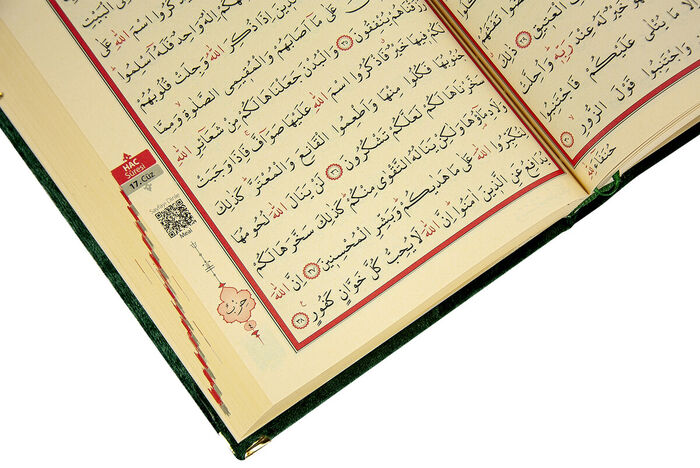 الْعَتِيقِ ٢٩ ذٰلِكَ
خَيْرٌ لَهُ عِنْدَ رَبِّهِ وَاُحِلَّتْ
مَا يُتْلٰى عَلَيْكُمْ فَاجْتَنِبُوا
وَاجْتَنِبُوا قَوْلَ الزُّورِ ٣٠
حُنَفَاءَ لِلّٰهِ
الْبَيْتِ
اسْمَ اللّٰهِ عَلٰى
اِلٰهٌ وَاحِدٌ فَلَهُ اَسْلِمُوا
الَّذِينَ اِذَا ذُكِرَ اللّٰهُ وَجِلَتْ قُلُوبُهُمْ
عَلٰى مَا اَصَابَهُمْ وَالْمُقِيمِي الصَّلٰوةِ وَمِمَّا
رَزَقْنَاهُمْ يُنْفِقُونَ ٣٥ وَالْبُدْنَ جَعَلْنَاهَا لَكُمْ مِنْ شَعَائِرِ اللّٰهِ
لَكُمْ فِيهَا خَيْرٌ فَاذْكُرُوا اسْمَ اللّٰهِ عَلَيْهَا صَوَافَّ فَاِذَا وَجَبَتْ
جُنُوبُهَا فَكُلُوا مِنْهَا وَاَطْعِمُوا الْقَانِعَ وَالْمُعْتَرَّ كَذٰلِكَ
سَخَّرْنَاهَا لَكُمْ لَعَلَّكُمْ تَشْكُرُونَ ٣٦ لَنْ يَنَالَ اللّٰهَ لُحُومُهَا
وَلَا دِمَاؤُهَا وَلٰكِنْ يَنَالُهُ التَّقْوٰى مِنْكُمْ كَذٰلِكَ سَخَّرَهَا لَكُمْ
لِتُكَبِّرُوا اللّٰهَ عَلٰى مَا هَدٰيكُمْ وَبَشِّرِ الْمُحْسِنِينَ ٣٧ اِنَّ اللّٰهَ
يُدَافِعُ عَنِ الَّذِينَ اٰمَنُوا اِنَّ اللّٰهَ لَا يُحِبُّ كُلَّ خَوَّانٍ كَفُورٍ ٣٨
HAC
Sûresi
17. Cüz
Sayfayı Dinle
Meal
حزب